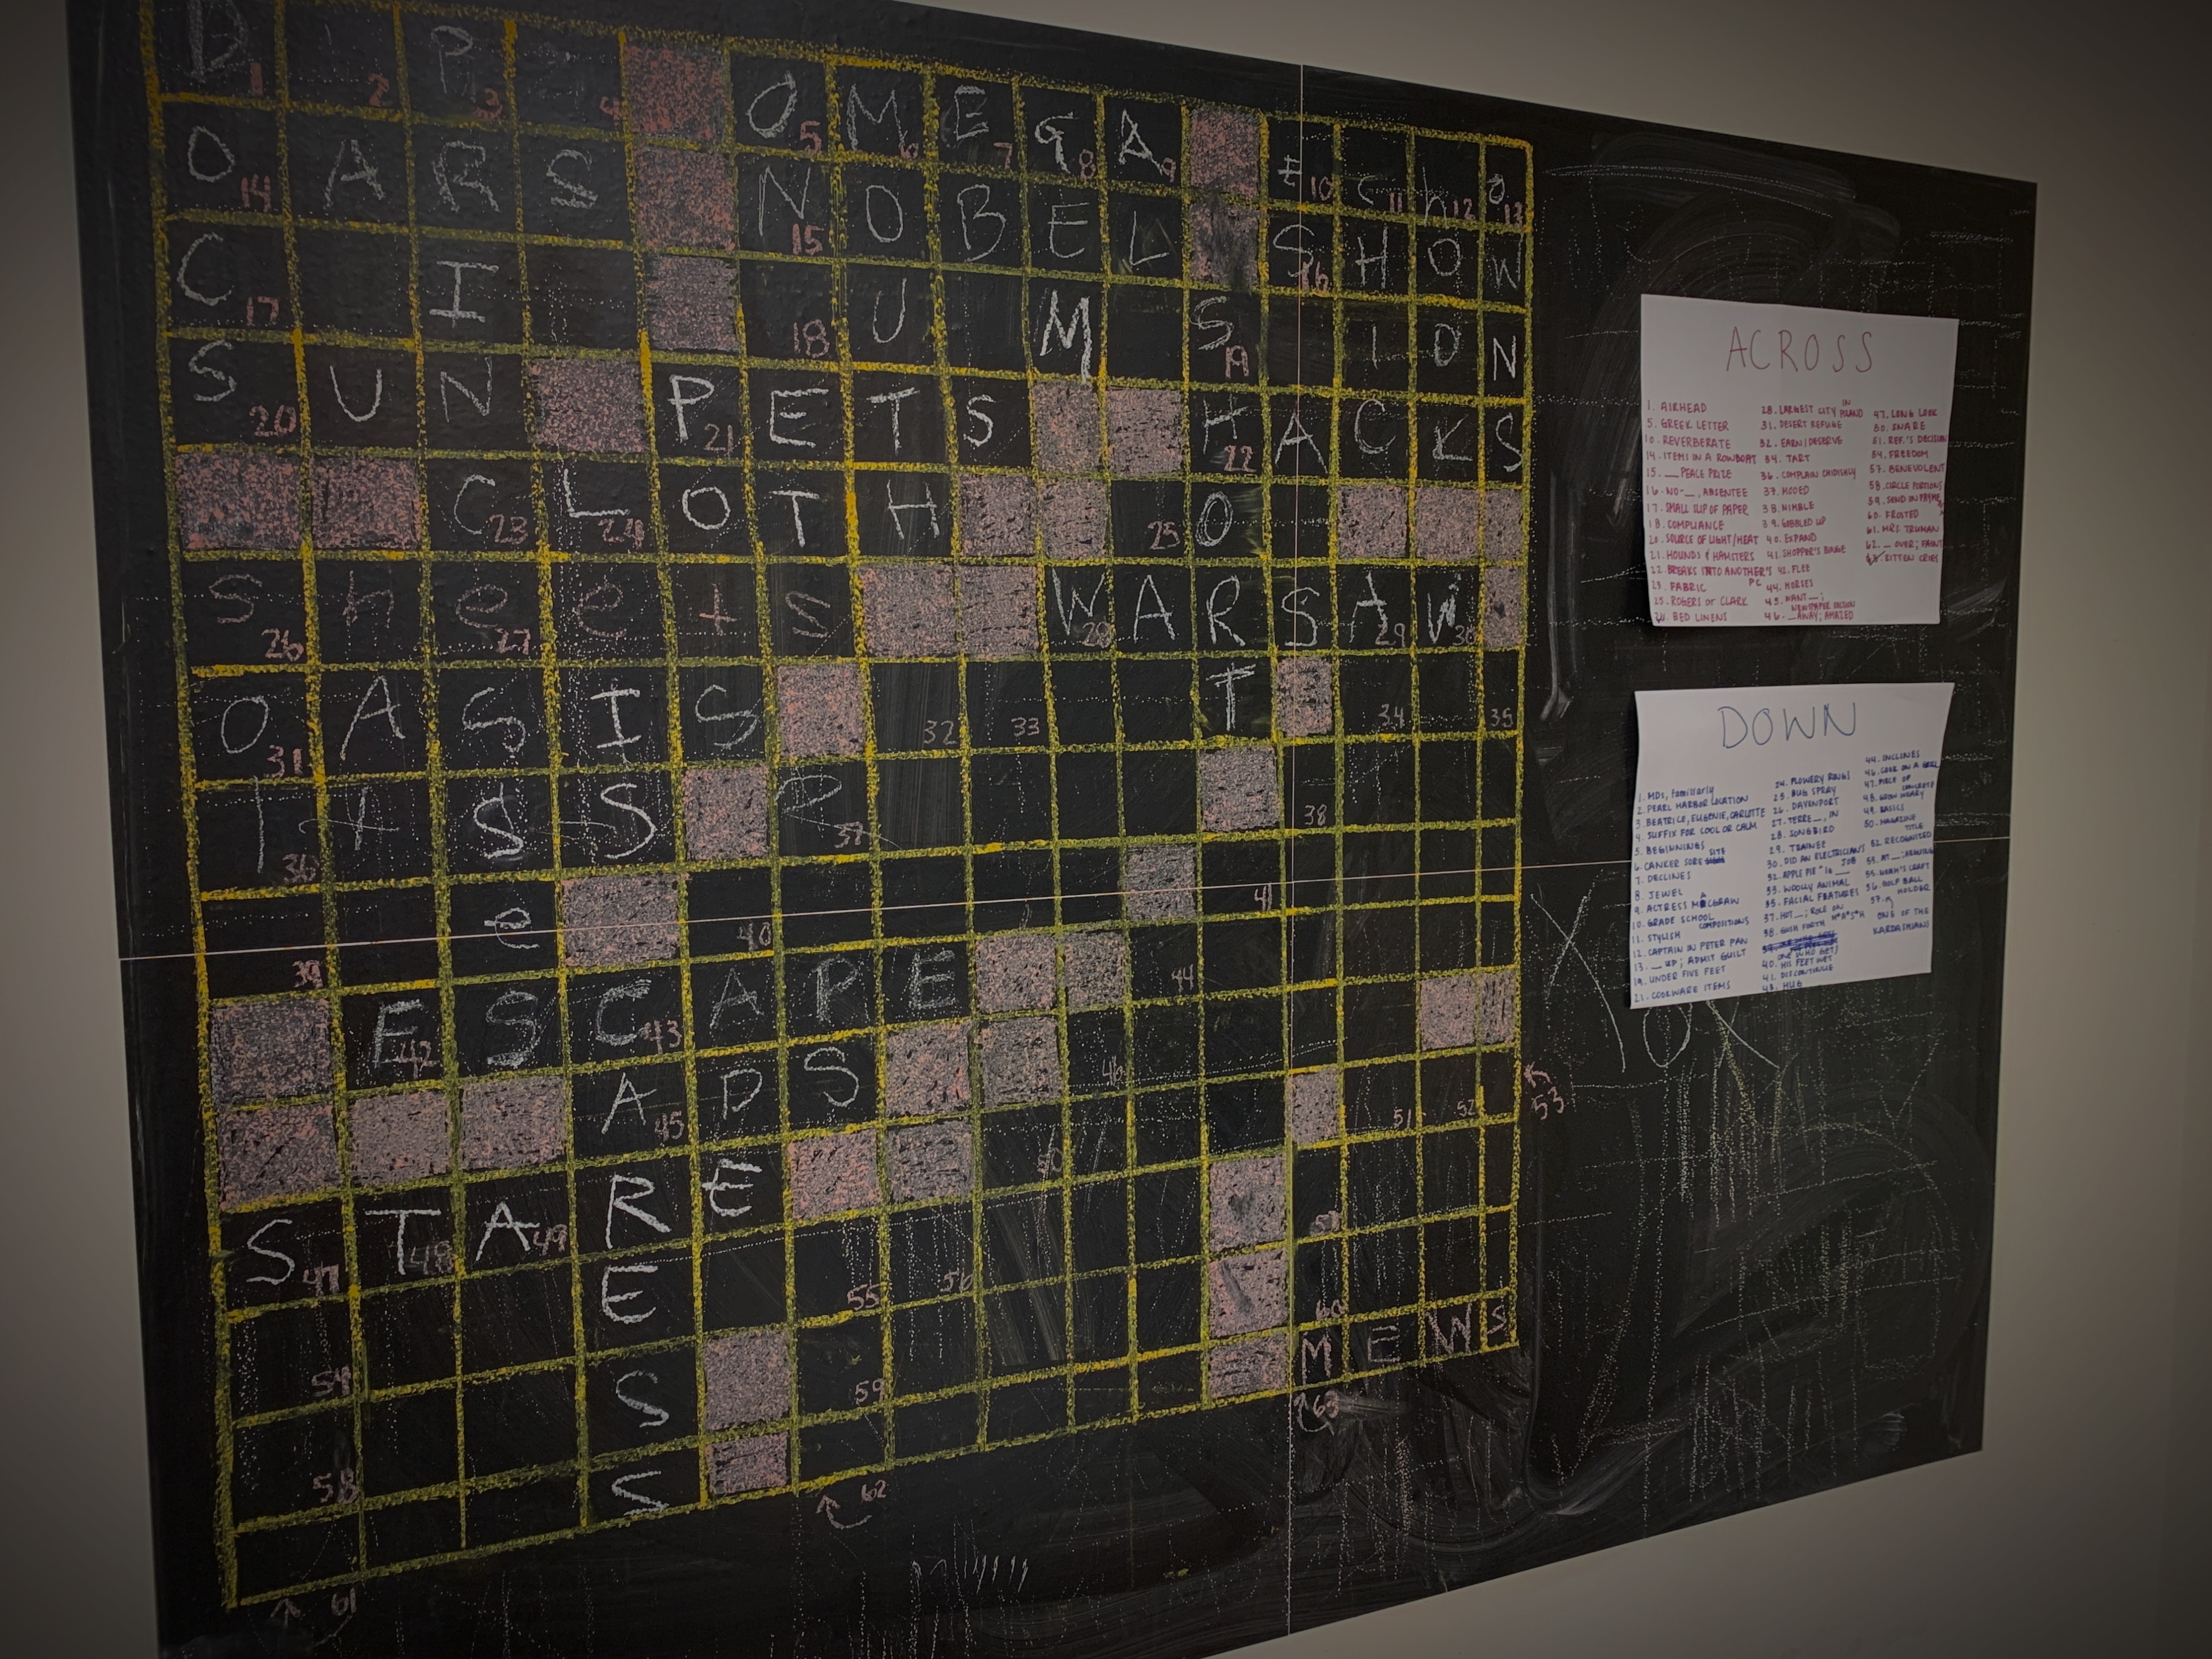 D 1 2 P 3 4 O 5 M 6 E 7 G 8 A 9 E 10 C 11 h 12 O 13
O 14 A R S N 15 O B E L S 16 H O W
C 17 I 18 U M S 19 I O N
S 20 U N P 21 E T S H 22 A C K S
C 23 L 24 O T H 25 O
S 26 h e 27 e t s W 28 A R S A 29 W 30
O 31 A S I S 32 33 T 34 35
36 S S R 37 38
39 e 40 41
E 42 S C 43 A P E 44
A 45 P S 46 51 52 53
S 47 T 48 A 49 R E 50 57
54 E 55 56 60
58 S 59 M E W S
S 62 63
61
ACROSS
1. AIRHEAD
5. GREEK LETTER
10. REVERBERATE
14. ITEMS IN A ROWBOAT
15. __ PEACE PRIZE
16. NO-__, ABSENTEE
17. SMALL SLIP OF PAPER
18. COMPLIANCE
20. SOURCE OF LIGHT/HEAT
21. HOUNDS & HAMSTERS
22. BREAKS INTO ANOTHER'S PC
23. FABRIC
25. ROGERS or CLARK
26. BED LINENS
28. LARGEST CITY IN POLAND
31. DESERT REFUGE
32. EARN; DESERVE
34. TART
36. COMPLAIN CHILDISHLY
37. MOOED
38. NIMBLE
39. GOBBLED UP
40. EXPAND
41. SHOPPER'S BINGE
42. FLEE
44. HORSES
45. WANT __; NEWSPAPER SECTION
46. __ AWAY; AMAZED
47. LONG LOOK
50. SNARE
51. REF.'S DECISION
54. FREEDOM
57. BENEVOLENT
58. CIRCLE PORTIONS
59. SEND IN PAYME
60. FROSTED
61. MRS. TRUMAN
62. __ OVER; FAINT
63. KITTEN CRIES
DOWN
1. MDs, familiarly
2. PEARL HARBOR LOCATION
3. BEATRICE, EUGENIE, CHARLOTTE
4. SUFFIX FOR COOL OR CALM
5. BEGINNINGS
6. CANKER SORE SITE
7. DECLINES
8. JEWEL
9. ACTRESS MACGRAW
10. GRADE SCHOOL COMPOSITIONS
11. STYLISH
12. CAPTAIN IN PETER PAN
13. __ UP; ADMIT GUILT
19. UNDER FIVE FEET
21. COOKWARE ITEMS
24. FLOWERY RINGS
25. BUG SPRAY
26. DAVENPORT
27. TERRE __, IN
28. SONGBIRD
29. TRAINEE
30. DID AN ELECTRICIAN'S JOB
32. APPLE PIE "la __
33. WOOLLY ANIMAL
35. FACIAL FEATURES
37. HOT __; ROLE ON M*A*S*H
38. GUSH FORTH
ONE WHO GETS
40. HIS FEET WET
41. DISCONTINUE
43. HUG
44. INCLINES
46. COOK ON A GRILL
47. PIECE OF CONCRETE
48. GROW WEARY
49. BASICS
50. MAGAZINE TITLE
52. RECOGNIZED
53. AT __; ARGUING
55. NOAH'S CRAFT
56. GOLF BALL HOLDER
57. ONE OF THE KARDASHIANS